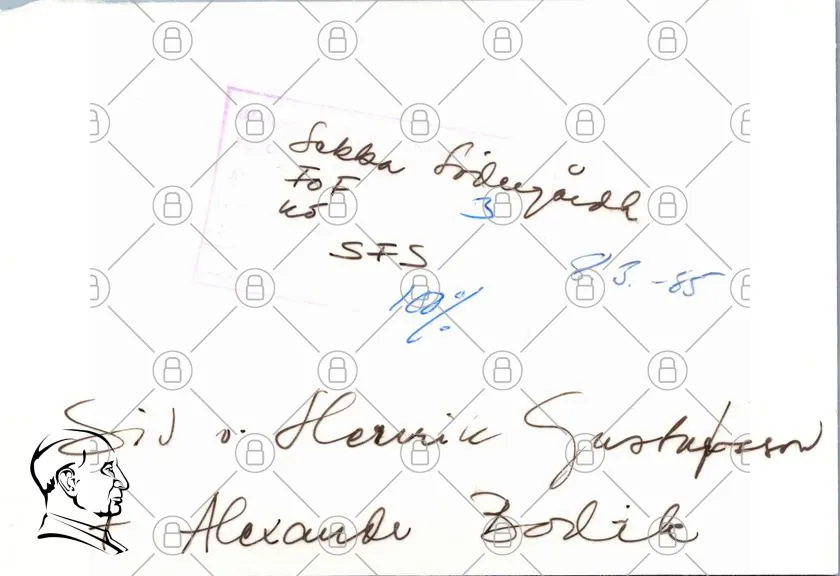 Sakka Södergårdh
FoF
KS 3
SFS
8/3. -85
100%
Sid v. Henrik Gustafsson
+ Alexander Bodik